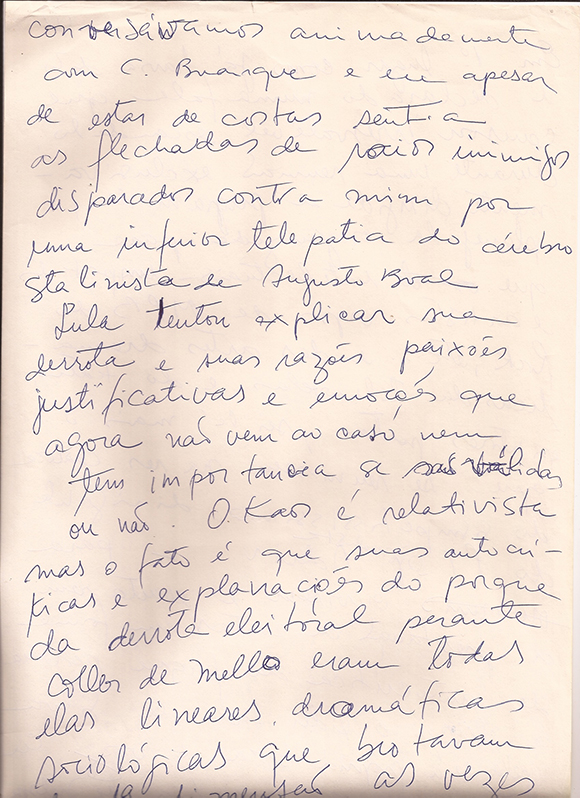 conversávamos animadamente
com C. Buarque e eu apesar
de estar de costas sentia
as flechadas de raios inimigos
disparados contra mim por
uma inferior telepatia do cérebro
stalinista de Augusto Boal
Lula tentou explicar sua
derrota e suas razões paixões
justificativas e emoções que
agora não vem ao caso nem
tem importancia se são válidas
ou não. O Kaos é relativista
mas o fato é que suas autocrí-
ticas e explanações do porque
da derrota eleitoral perante
Collor de Mello eram todas
elas lineares, dramáticas
sociológicas que brotavam
as vezes